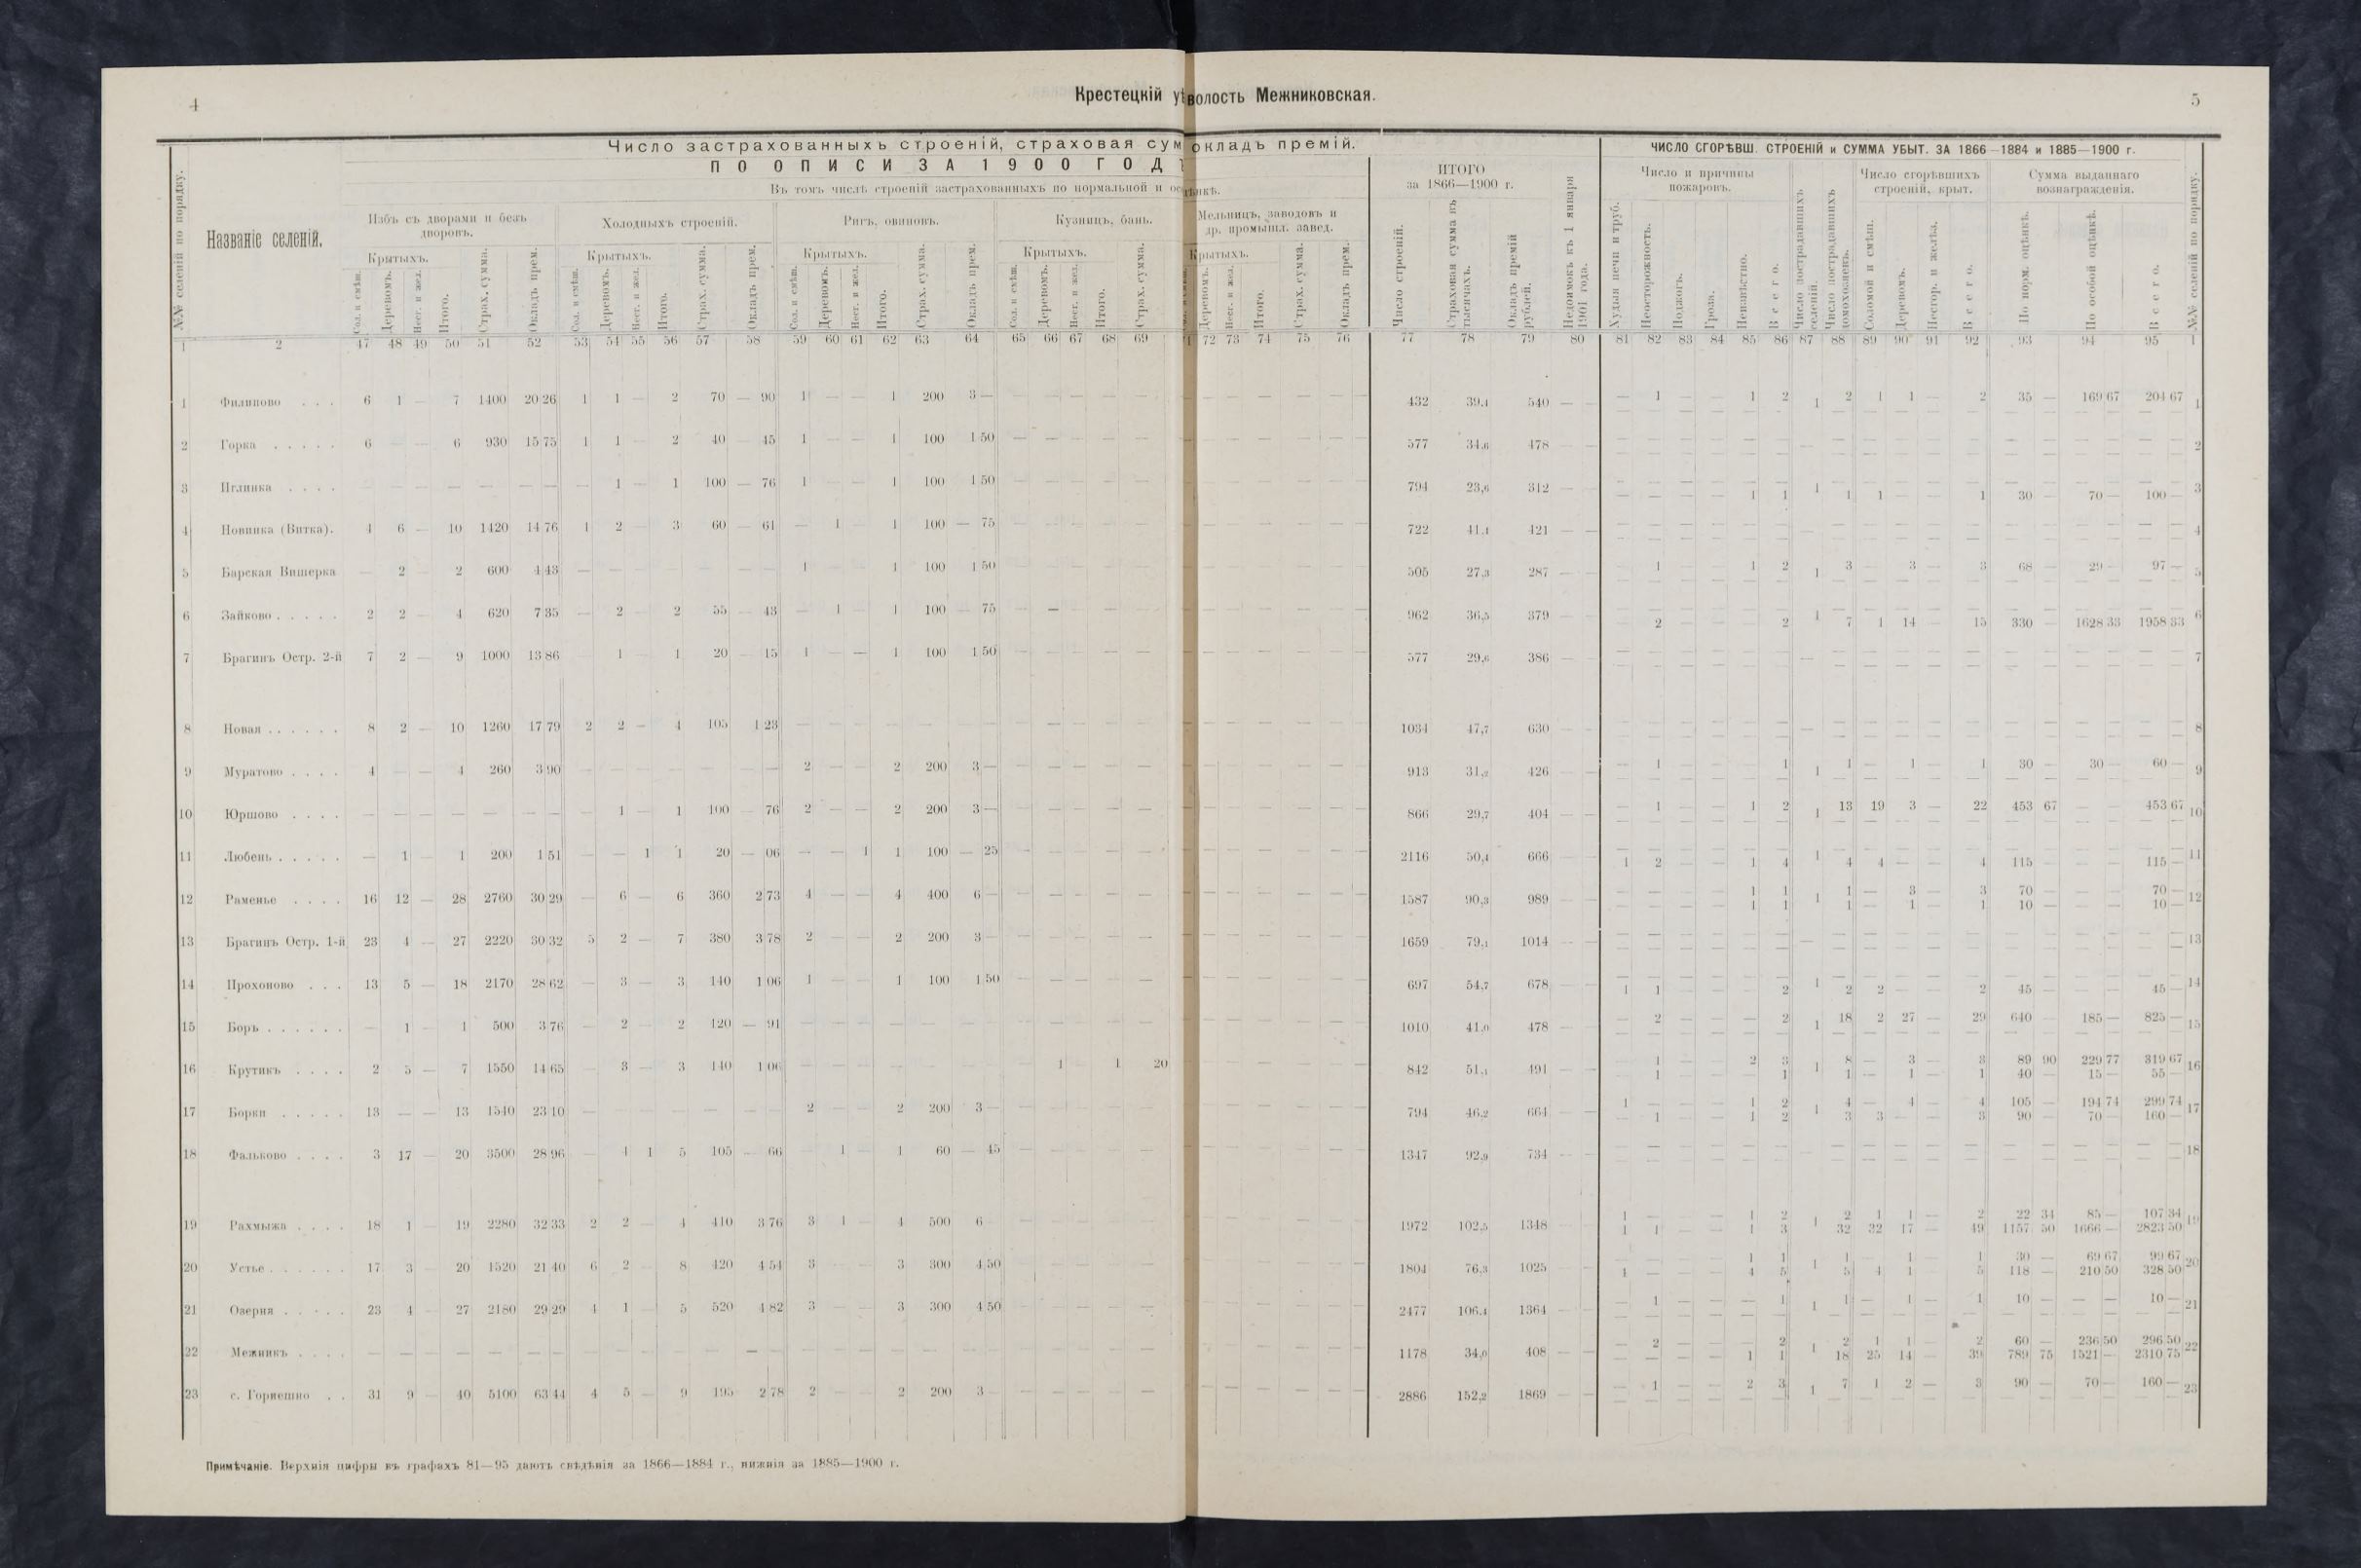 4
Крестецкій у
волость Межниковская.
5
Число застрахованныхъ строеній, страховая сум
окладъ премій.
ПО ОПИСИ ЗА 1900 ГОД
Въ томъ числѣ строеній застрахованныхъ по нормальной и ос
ѣнкѣ.
№№ селеній по порядку.
Названіе селеній.
Избъ съ дворами и безъ дворовъ.
Холодныхъ строеній.
Ригъ, овиновъ.
Кузницъ, бань.
Мельницъ, заводовъ и др. промышл. завед.
ИТОГО за 1866—1900 г.
Недоимокъ къ 1 января 1901 года.
ЧИСЛО СГОРѢВШ. СТРОЕНІЙ и СУММА УБЫТ. ЗА 1866—1884 и 1885—1900 г.
Число и причины пожаровъ.
Число пострадавшихъ селеній.
Число пострадавшихъ домохозяевъ.
Число сгорѣвшихъ строеній, крыт.
Сумма выданнаго вознагражденія.
№№ селеній по порядку.
Крытыхъ. Сол. и смѣш. Деревомъ. Нест. и жел. Итого. Страх. сумма. Окладъ прем.
Крытыхъ. Сол. и смѣш. Деревомъ. Нест. и жел. Итого. Страх. сумма. Окладъ прем.
Крытыхъ. Сол. и смѣш. Деревомъ. Нест. и жел. Итого. Страх. сумма. Окладъ прем.
Крытыхъ. Сол. и смѣш. Деревомъ. Нест. и жел. Итого. Страх. сумма.
Крытыхъ. Деревомъ. Нест. и жел. Итого. Страх. сумма. Окладъ прем.
Число строеній. Страховая сумма въ тысячахъ. Окладъ премій рублей.
Худыя печи и труб. Неосторожность. Поджогъ. Гроза. Неизвѣстно. Всего.
Соломой и смѣш. Деревомъ. Нестор. и желѣз. Всего.
По норм. оцѣнкѣ. По особой оцѣнкѣ. Всего.
1 2 47 48 49 50 51 52 53 54 55 56 57 58 59 60 61 62 63 64 65 66 67 68 69 72 73 74 75 76 77 78 79 80 81 82 83 84 85 86 87 88 89 90 91 92 93 94 95 1
1 Филипово . . . 6 1 — 7 1400 20 26 1 1 — 2 70 — 90 1 — — 1 200 3 — 432 39,4 540 — — — 1 — — 1 2 1 2 1 1 — 2 35 — 169 67 204 67 1
2 Горка . . . . . 6 — — 6 930 15 75 1 1 — 2 40 — 45 1 — — 1 100 1 50 — — — — — 577 34,6 478 — — 2
3 Иглинка . . . . — — — — — — — 1 — 1 100 — 76 1 — — 1 100 1 50 — — — — — 794 23,6 312 — — — — — — 1 1 1 1 1 — — 1 30 — 70 — 100 — 3
4 Новинка (Витка). 4 6 — 10 1420 14 76 1 2 — 3 60 — 61 — 1 — 1 100 — 75 — — — — — 722 41,4 421 — — 4
5 Барская Вишерка — 2 — 2 600 4 43 — — — — — — 1 — — 1 100 1 50 — — — — — 505 27,3 287 — — — 1 — — 1 2 1 3 — 3 — 3 68 — 29 — 97 — 5
6 Зайково . . . . . 2 2 — 4 620 7 35 — 2 — 2 55 — 43 — 1 — 1 100 — 75 — — — — — 962 36,5 379 — — — 2 — — — 2 1 7 1 14 — 15 330 — 1628 33 1958 33 6
7 Брагинъ Остр. 2-й 7 2 — 9 1000 13 86 1 — 1 20 — 15 1 — — 1 100 1 50 — — — — — 577 29,6 386 — — 7
8 Новая . . . . . . 8 2 — 10 1260 17 79 2 2 — 4 105 1 23 — — — — — — — — — — — 1034 47,7 630 — — 8
9 Муратово . . . . 4 — — 4 260 3 90 — — — — — — 2 — — 2 200 3 — — — — — — 913 31,2 426 — — — 1 — — — 1 1 1 — 1 — 1 30 — 30 — 60 — 9
10 Юршово . . . . — — — — — — — 1 — 1 100 — 76 2 — — 2 200 3 — — — — — — 866 29,7 404 — — — 1 — — 1 2 1 13 19 3 — 22 453 67 — 453 67 10
11 Любень . . . . . — 1 — 1 200 1 51 — — 1 1 20 — 06 — — 1 1 100 — 25 — — — — — 2116 50,4 666 — — 1 2 — — 1 4 1 4 4 — — 4 115 — — — 115 — 11
12 Раменье . . . . 16 12 — 28 2760 30 29 — 6 — 6 360 2 73 4 — — 4 400 6 — — — — — — 1587 90,3 989 — — — — — — 1 1 1 1 — 3 — 3 70 — — — 70 — 12
— — — — 1 1 1 — 1 — 1 10 — — — 10 —
13 Брагинъ Остр. 1-й 23 4 — 27 2220 30 32 5 2 — 7 380 3 78 2 — — 2 200 3 — — — — — — 1659 79,1 1014 — — 13
14 Прохоново . . . 13 5 — 18 2170 28 62 — 3 — 3 140 1 06 1 — — 1 100 1 50 — — — — — 697 54,7 678 — — 1 1 — — — 2 1 2 2 — — 2 45 — — — 45 — 14
15 Боръ . . . . . . — 1 — 1 500 3 76 — 2 — 2 120 — 91 — — — — — — — — — — — 1010 41,0 478 — — — 2 — — — 2 1 18 2 27 — 29 640 — 185 — 825 — 15
16 Крутикъ . . . . 2 5 — 7 1550 14 65 — 3 — 3 140 1 06 — — — — — — — 1 — 1 20 842 51,1 491 — — — 1 — — 2 3 1 8 — 3 — 3 89 90 229 77 319 67 16
— 1 — — — 1 1 — 1 — 1 40 — 15 — 55 —
17 Борки . . . . . 13 — — 13 1540 23 10 — — — — — 2 — — 2 200 3 — — — — — — 794 46,2 664 — — 1 — — — 1 2 1 4 — 4 — 4 105 — 194 74 299 74 17
— 1 — — 1 2 3 3 — — 3 90 — 70 — 160 —
18 Фальково . . . . 3 17 — 20 3500 28 96 — 4 1 5 105 — 66 — 1 — 1 60 — 45 — — — — — 1347 92,9 734 — — 18
19 Рахмыжа . . . . 18 1 — 19 2280 32 33 2 2 — 4 410 3 76 3 1 — 4 500 6 — — — — — — 1972 102,5 1348 — — 1 — — — 1 2 1 2 1 1 — 2 22 34 85 — 107 34 19
1 1 — — 1 3 32 32 17 — 49 1157 50 1666 — 2823 50
20 Устье . . . . . . 17 3 — 20 1520 21 40 6 2 — 8 420 4 54 3 — — 3 300 4 50 — — — — — 1804 76,3 1025 — — — — — — 1 1 1 1 — 1 — 1 30 — 69 67 99 67 20
1 — — — 4 5 5 4 1 — 5 118 — 210 50 328 50
21 Озерия . . . . . 23 4 — 27 2180 29 29 4 1 — 5 520 4 82 3 — — 3 300 4 50 — — — — — 2477 106,4 1364 — — — 1 — — — 1 1 1 — 1 — 1 10 — — — 10 — 21
22 Межникъ . . . . — — — — — — — — — — — — — — — — — — — — — — — 1178 34,0 408 — — — 2 — — — 2 1 2 1 1 — 2 60 — 236 50 296 50 22
— — — — 1 1 18 25 14 — 39 789 75 1521 — 2310 75
23 с. Горнешно . . 31 9 — 40 5100 63 44 4 5 — 9 195 2 78 2 — — 2 200 3 — — — — — — 2886 152,2 1869 — — — 1 — — 2 3 1 7 1 2 — 3 90 — 70 — 160 — 23
Примѣчаніе. Верхнія цифры въ графахъ 81—95 даютъ свѣдѣнія за 1866—1884 г., нижнія за 1885—1900 г.